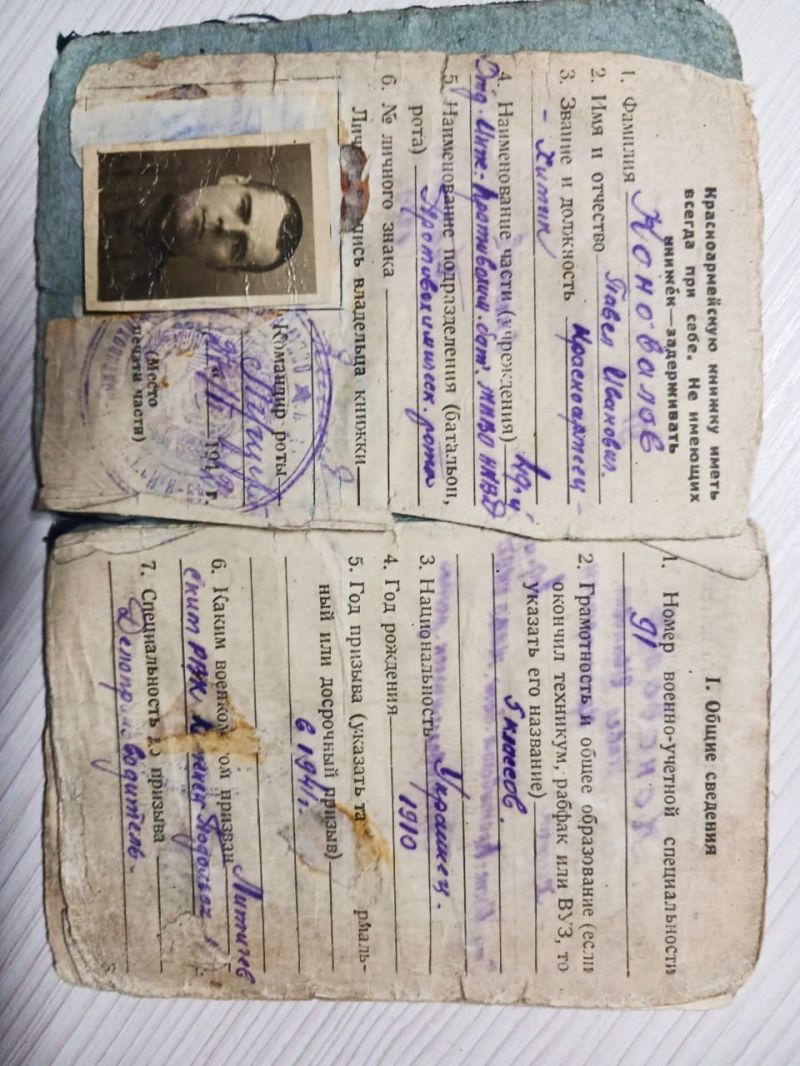 Красноармейскую книжку иметь
всегда при себе. Не имеющих
книжек—задерживать
1. Фамилия Коновалов
2. Имя и отчество Павел Иванович.
3. Звание и должность Красноармеец -
- Химик
4. Наименование части (учреждения)
Отд. Инж.- Противохим. бат. НКВД
5. Наименование подразделения (батальон,
рота) Противохимическ. рота
6. № личного знака
Лич пись владельца книжки
Командир роты
194 г.
(Место
печати части)
I. Общие сведения
1. Номер военно-учетной специальности
91
2. Грамотность и общее образование (если
окончил техникум, рабфак или ВУЗ, то
указать его название)
5 классов.
3. Национальность Украинец.
4. Год рождения 1910
5. Год призыва (указать рмаль-
ный или досрочный призыв)
в 1941г.
6. Каким военком том призван
РВК, Каменец Подольск
7. Специальность до призыва